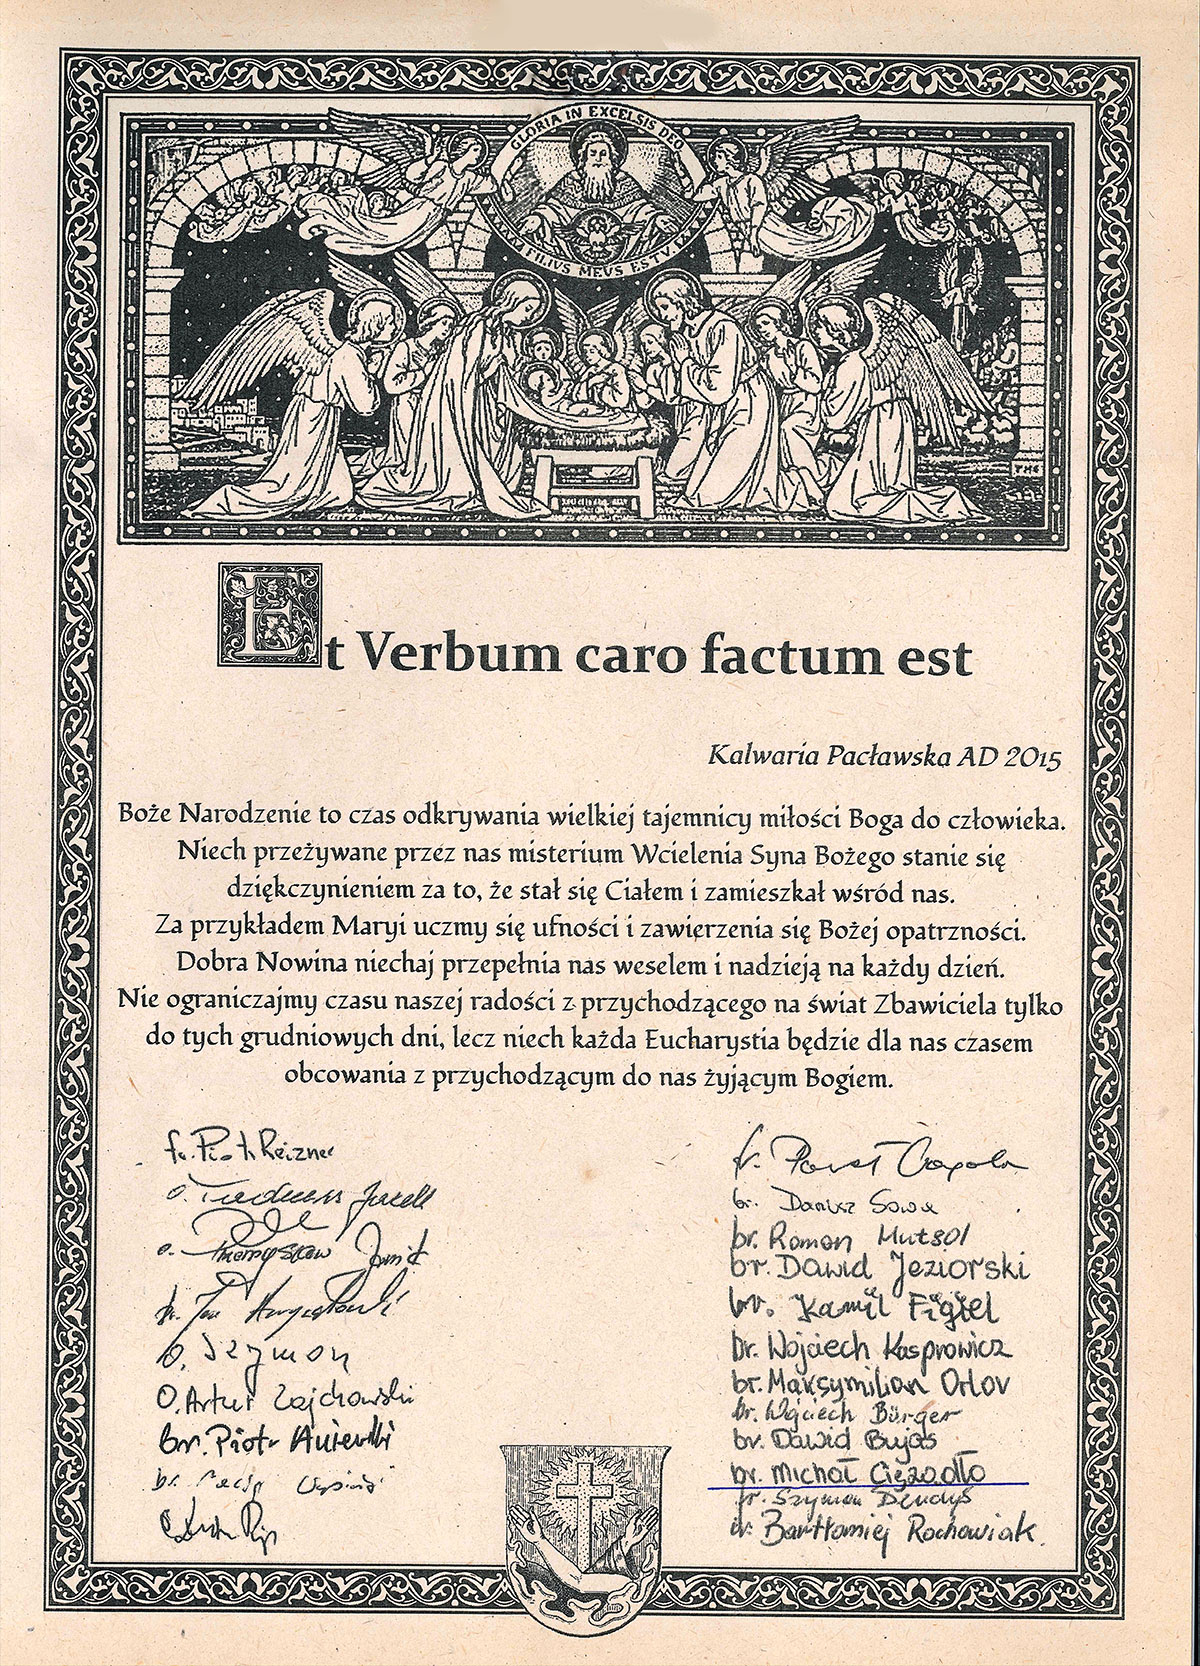 GLORIA IN EXCELSIS DEO
FILIVS MEVS EST
Et Verbum caro factum est
Kalwaria Pacławska AD 2015
Boże Narodzenie to czas odkrywania wielkiej tajemnicy miłości Boga do człowieka.
Niech przeżywane przez nas misterium Wcielenia Syna Bożego stanie się
dziękczynieniem za to, że stał się Ciałem i zamieszkał wśród nas.
Za przykładem Maryi uczmy się ufności i zawierzenia się Bożej opatrzności.
Dobra Nowina niechaj przepełnia nas weselem i nadzieją na każdy dzień.
Nie ograniczajmy czasu naszej radości z przychodzącego na świat Zbawiciela tylko
do tych grudniowych dni, lecz niech każda Eucharystia będzie dla nas czasem
obcowania z przychodzącym do nas żyjącym Bogiem.
fr. Piotr Reizner
o. Tadeusz
o. Przemysław
br. Jan
O. Szymon
O. Artur Zajchowski
br. Piotr
br.
fr. Paweł
br. Dariusz Sowa
br. Roman Mutsol
br. Dawid Jeziorski
br. Kamil Figiel
br. Wojciech Kasprowicz
br. Maksymilian Orlov
br. Wojciech Bürger
br. Dawid Bujas
br. Michał Ciężadło
fr. Szymon Dendys
br. Bartłomiej Rochowiak.